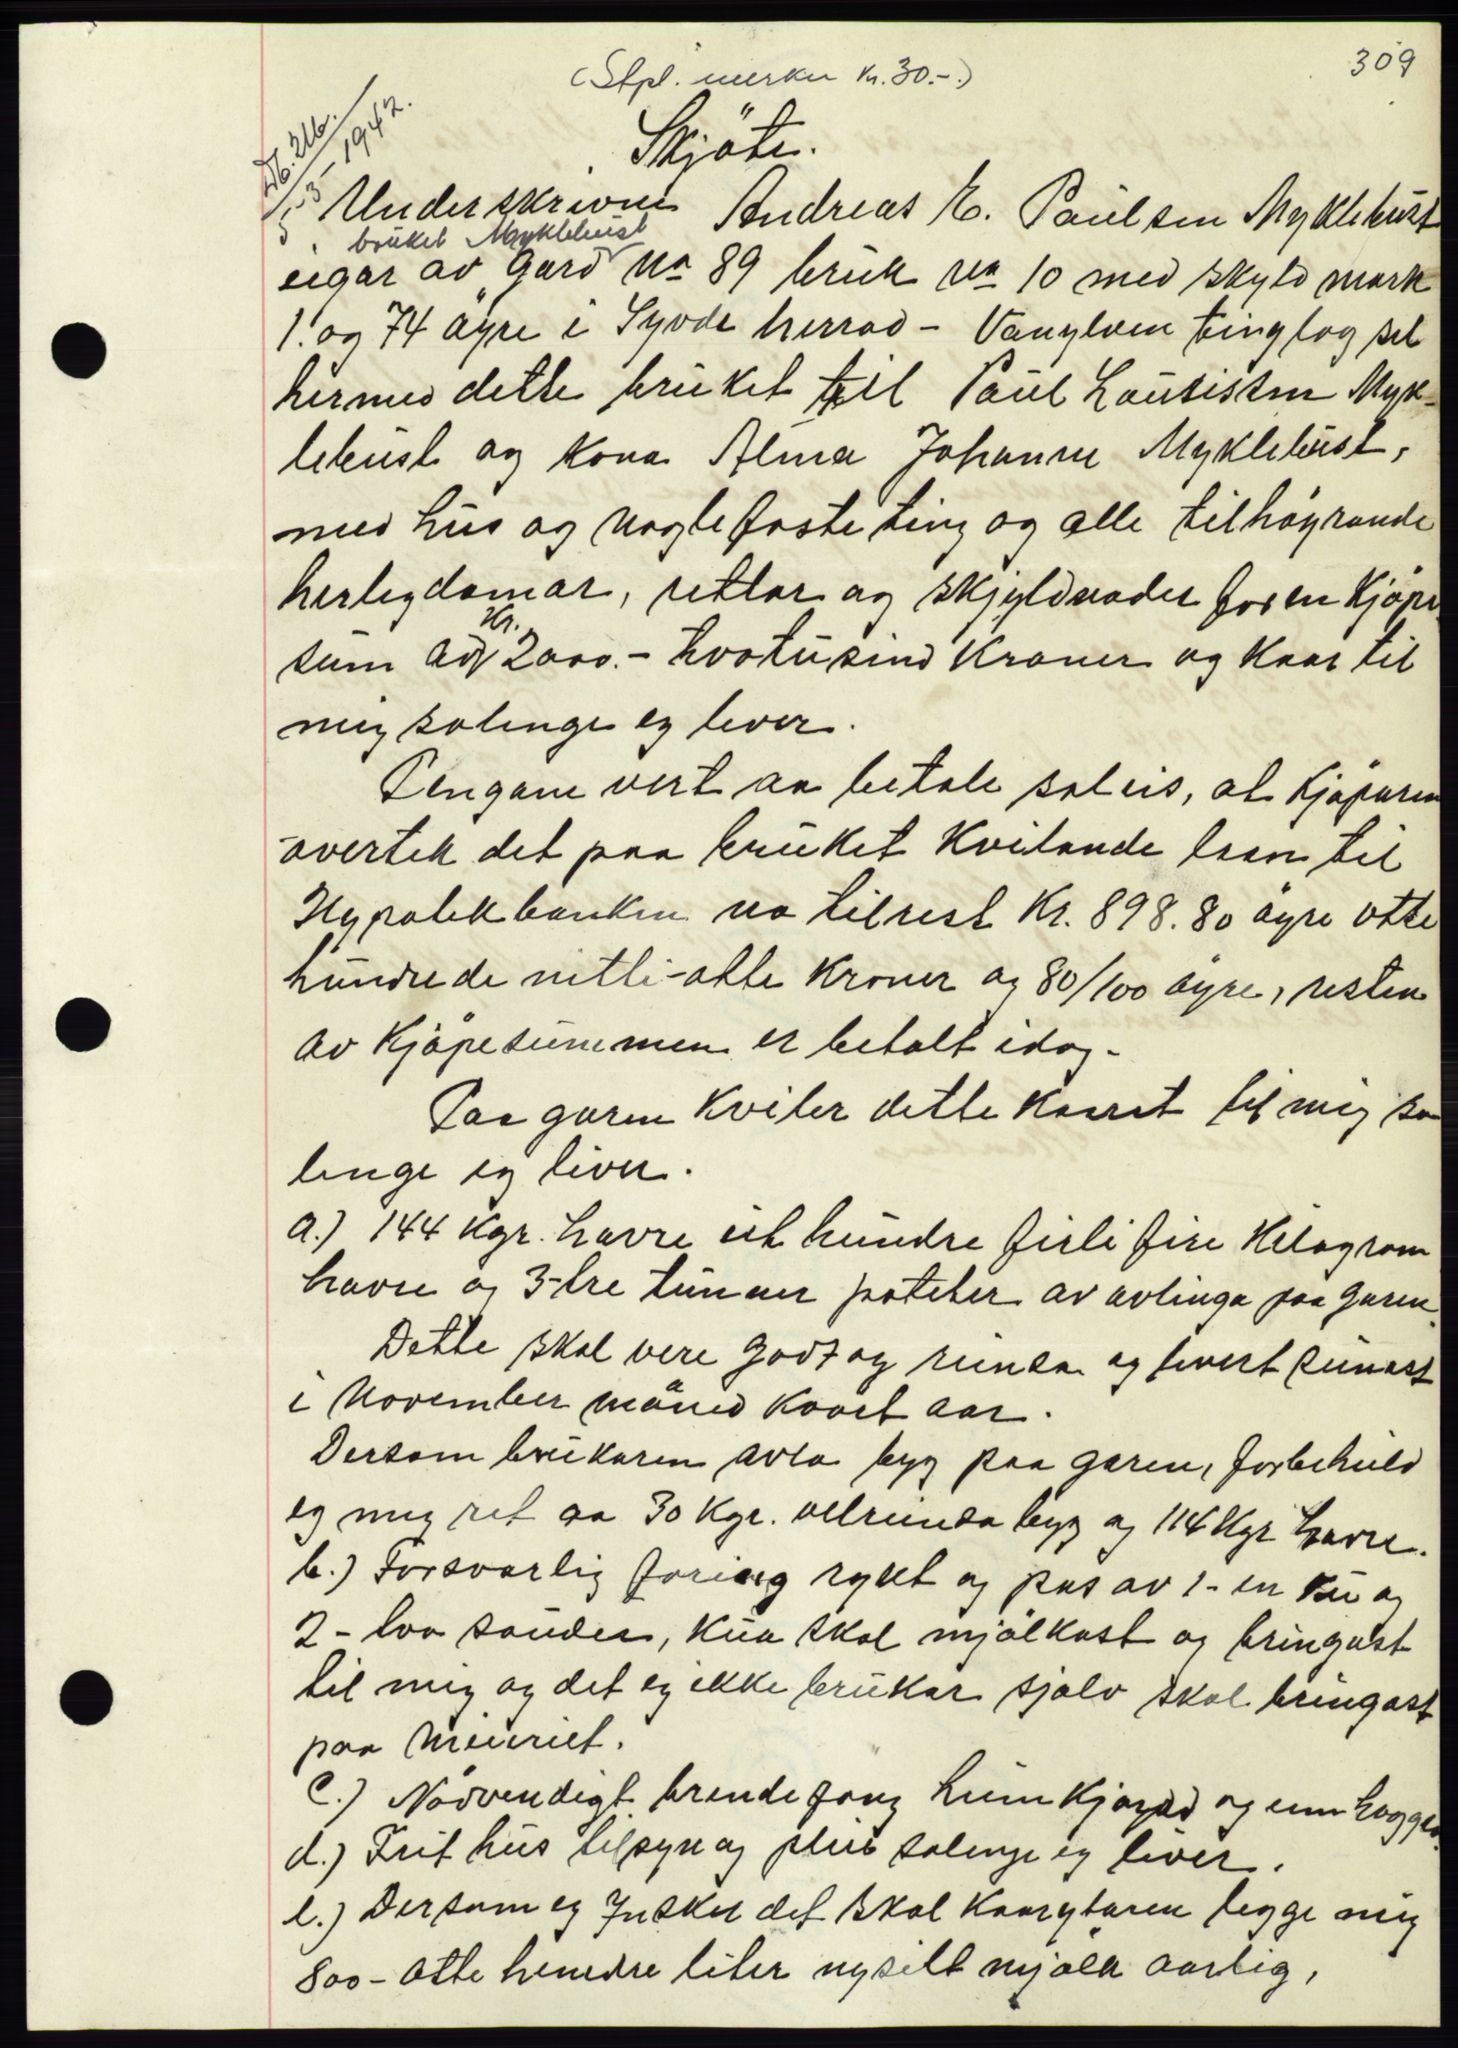 309
(Stpl. merker kr. 30.-)
Db. 216.
5/3-1942.
Skjöte.
Underskrivne Andreas E. Paulsen Myklebust
bruket Myklebust
eigar av gard no 89 bruk no 10 med skyld mark
1. og 74 øyre i Syvde herrad - Vanylven tinglag sel
hermed dette bruket til Paul Lauritsen Myk-
lebust og kona Alma Johanne Myklebust,
med hus og naglefaste ting og alle tilhøyrande
herlegdomar, rettar og skjyldnader for en kjöpe
kr.
sum av 2000.- tvotusind kroner og kaar til
mig solenge eg lever.
Pengane vert aa betale soleis, at kjöparen
overtek det paa bruket kvilande laan til
Hypotekbanken no tilrest kr. 898.80 øyre otte
hundrede nitti-otte kroner og 80/100 øyre, resten
av kjöpesummen er betalt idag.
Paa garen kviler dette kaaret til mig so
lenge eg liver.
a.) 144 kgr. havre eit hundre firti fire kilogram
havre og 3-tre tunner poteter av avlinga paa garen.
Dette skal vere godt og reinsa og levert seinast
i November måned kvart aar.
Dersom brukaren avla byg paa garen, forbeheld
eg mig ret aa 30 kgr. velreinsa byg og 114 kgr havre.
b.) Forsvarlig foring rykt og pas av 1-en ku og
2-tvo sauder, kua skal mjölkast og bringast
til mig og det eg ikke brukar sjølv skal bringast
paa meieriet.
c.) Nödvendigt brendefang heimkjørd og ____ hogge.
d.) Frit hus tilsyn og pleie solenge eg liver.
e.) Dersom eg ynsker det skal kaarytaren legge mig
800-otte hundre liter nysilt mjölk aarlig,